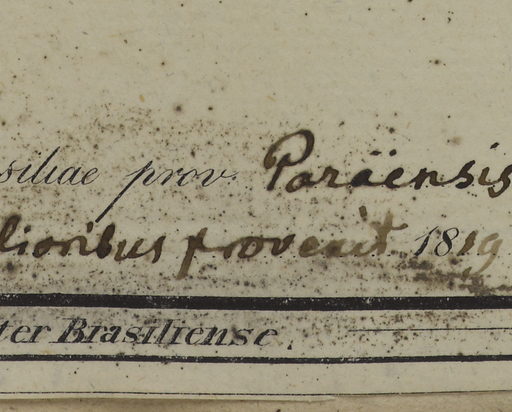 siliae prov Paraënsis
lioribus provenit 1819
ter Brasiliense.